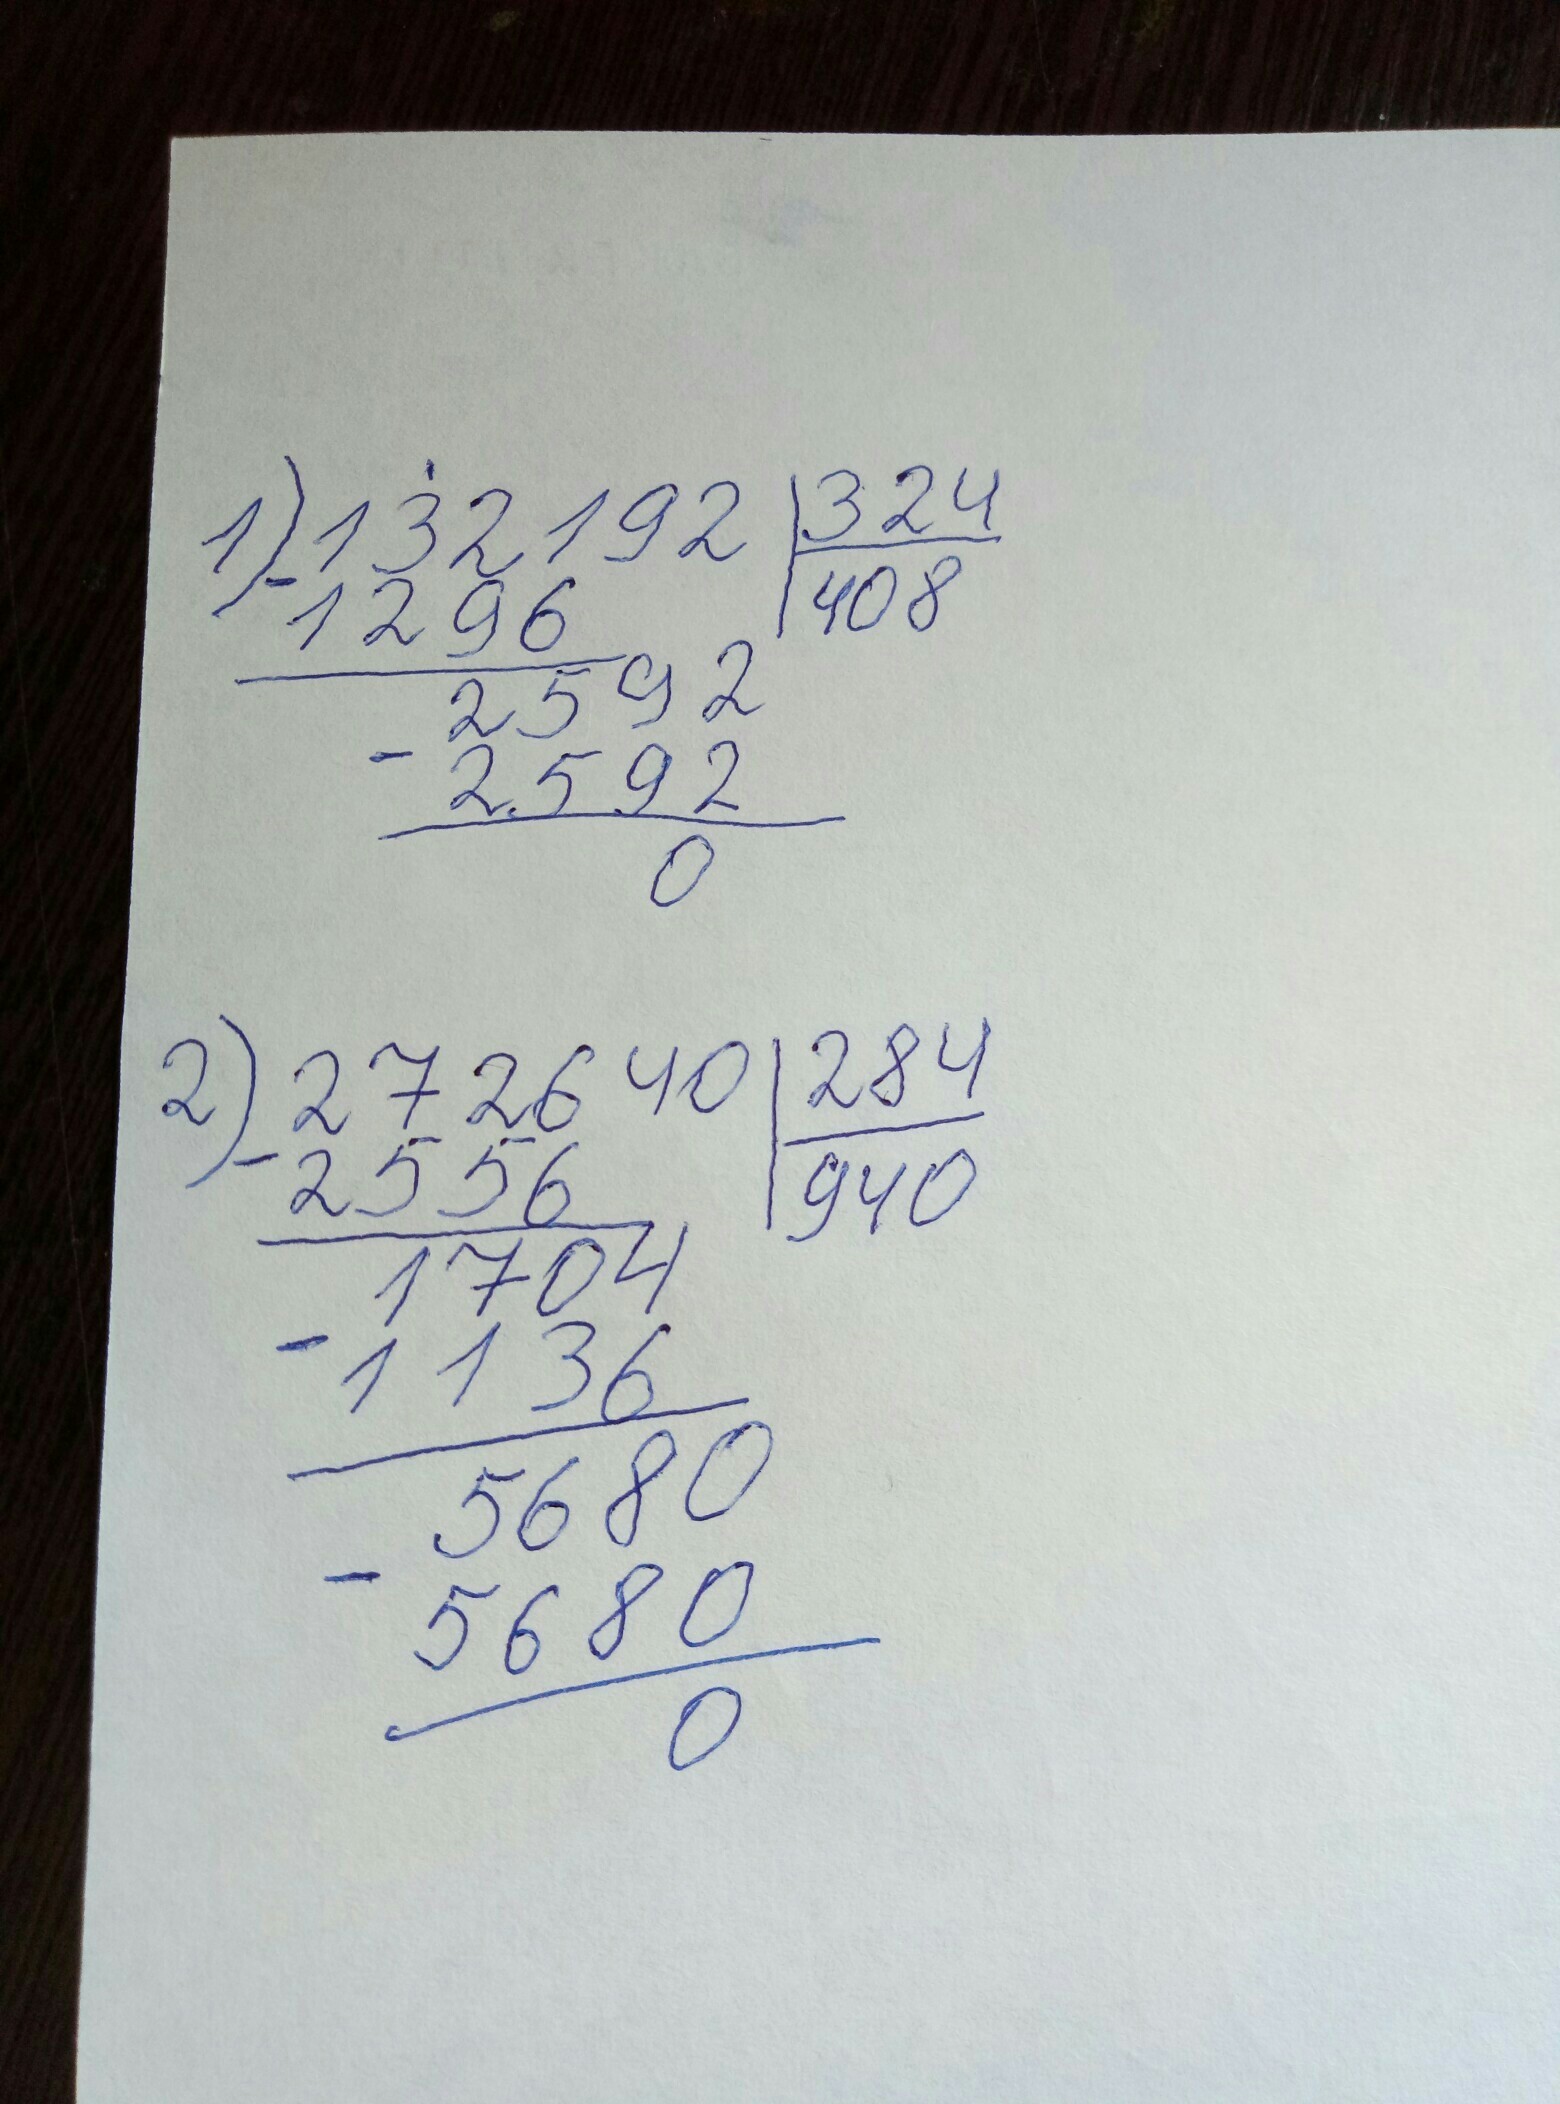 1) 132192 | 324
- 1296 | 408
2592
- 2592
0
2) 272640 | 284
- 2556 | 940
1704
- 1136
5680
- 5680
0